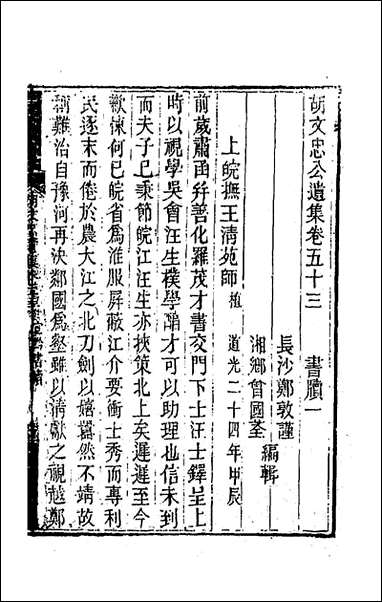 胡文忠公遺集卷五十三　書牘一
長沙鄭敦謹
湘鄉曾國荃　編輯
上皖撫王清苑師植　道光二十四年甲辰
前歲肅函幷善化羅茂才書交門下士汪士鐸呈上
時以視學吳會汪生樸學醰才可以助理也信未到
而夫子已秉節皖江汪生亦挾策北上矣遲遲至今
歉悚何已皖省爲淮服屏蔽江介要衝士秀而專利
民逐末而倦於農大江之北刀劍以嬉囂然不靖故
稱難治自豫河再決鄰國爲壑雖以清獻之視越鄭